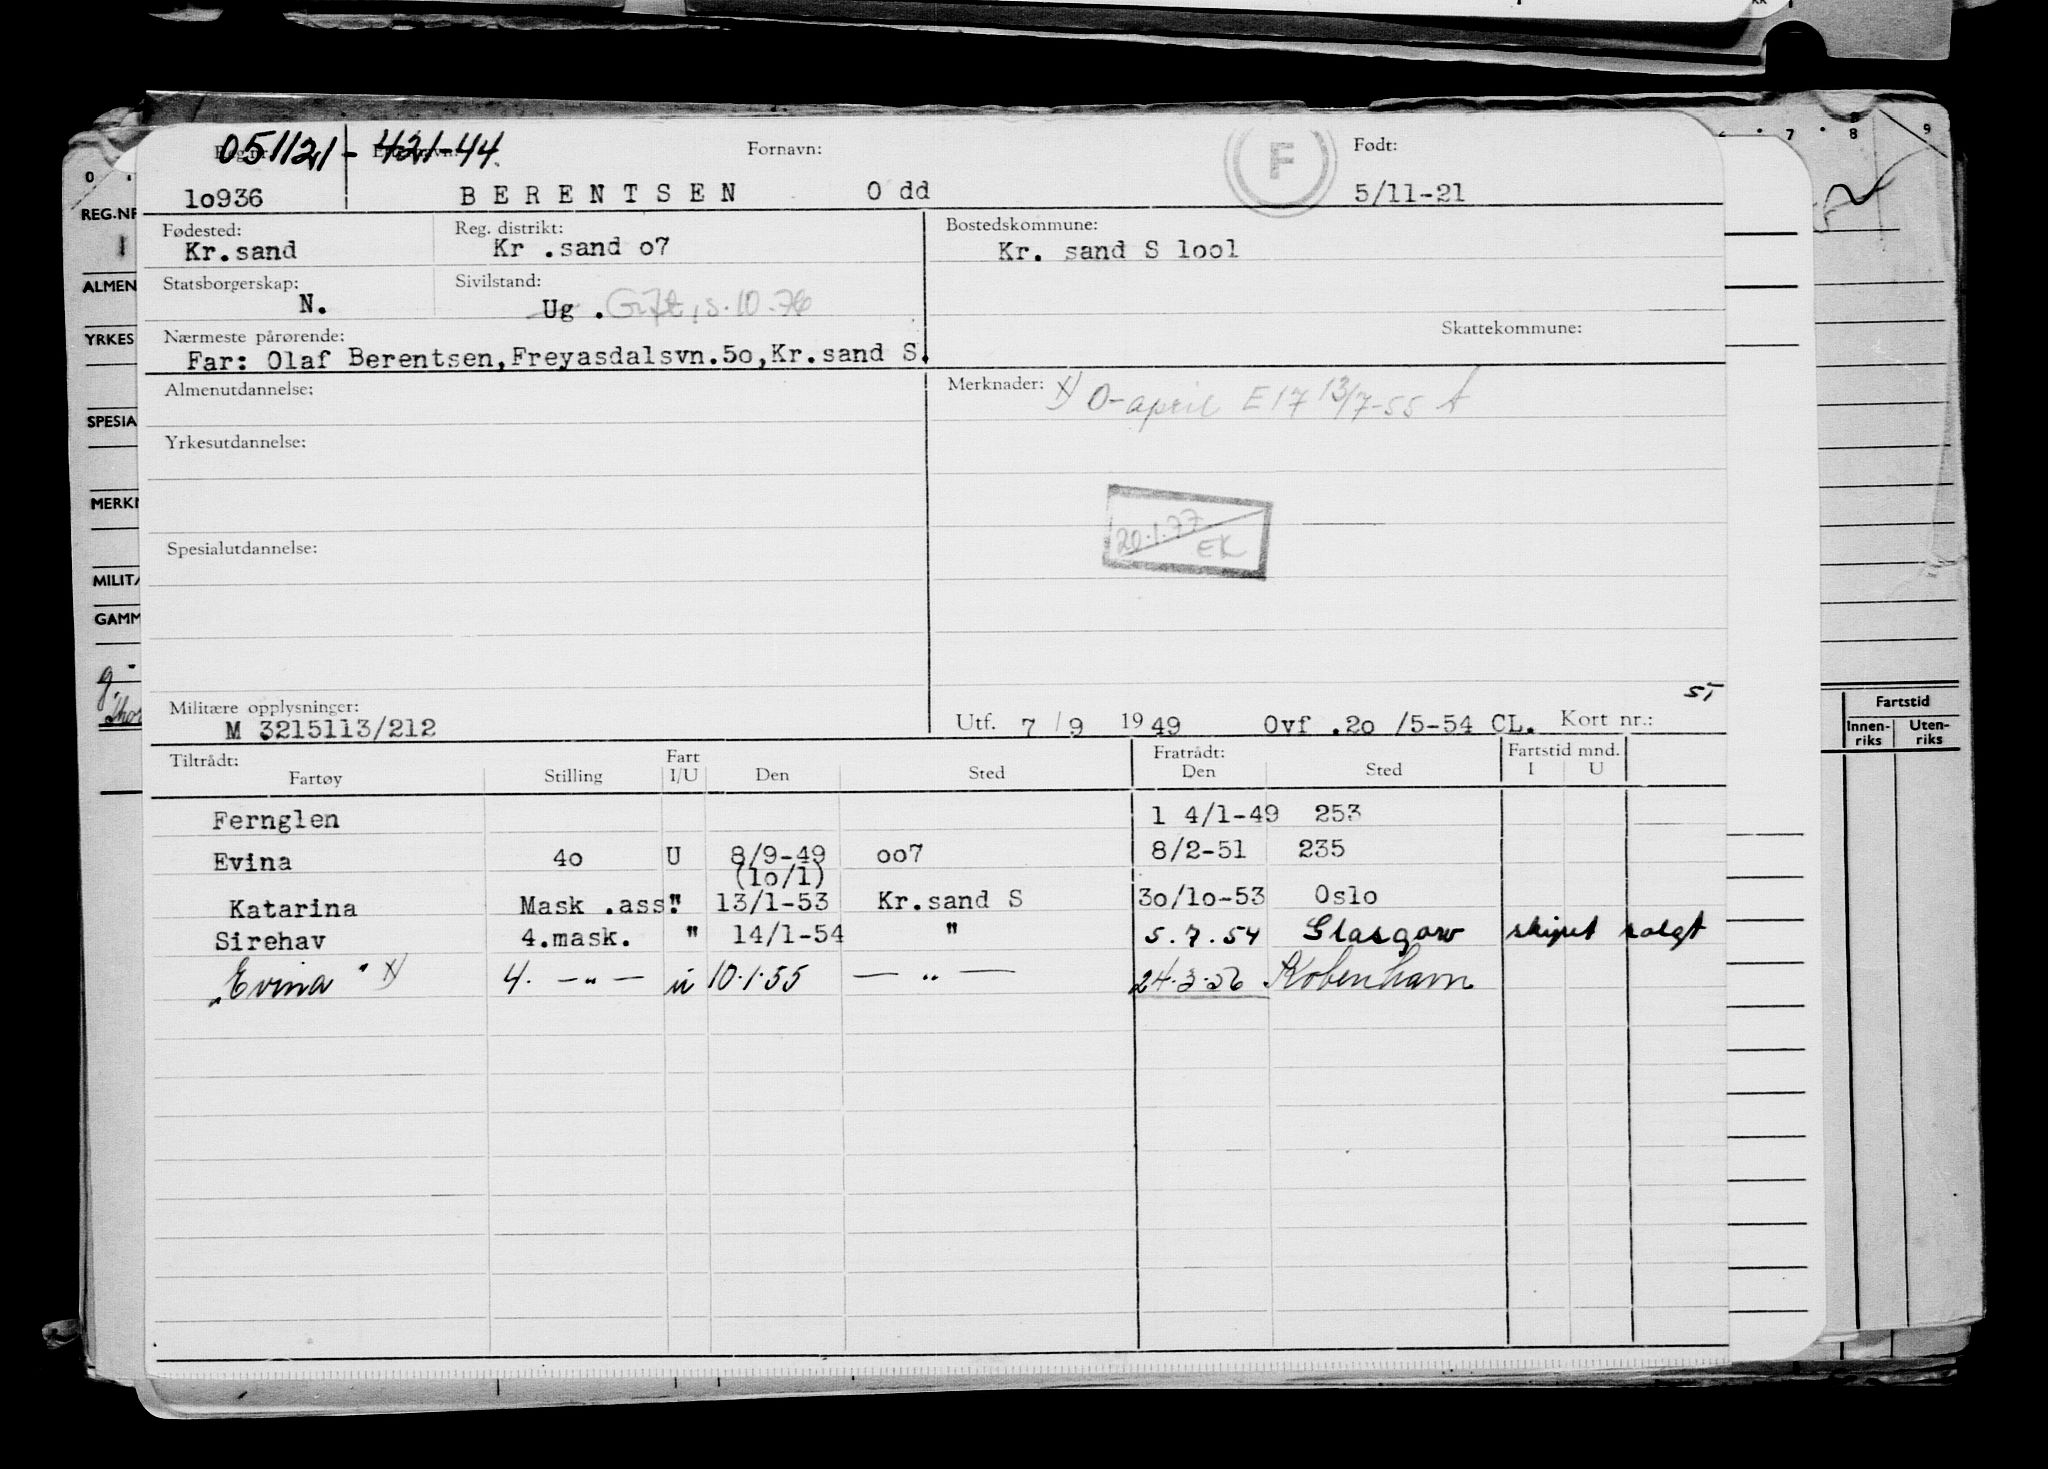 051121 - 421-44.
Fornavn: F Født:
1o936 B E R E N T S E N O dd 5/11-21
Fødested: Reg. distrikt: Bostedskommune:
Kr.sand Kr .sand o7 Kr. sand S 1oo1
Statsborgerskap: Sivilstand:
N. Ug . Gift, s.10.76
Nærmeste pårørende: Skattekommune:
Far: Olaf Berentsen,Freyasdalsvn.5o,Kr.sand S.
Almenutdannelse: Merknader: x) O-april E17 13/7-55
Yrkesutdannelse:
20.1.77
EK
Spesialutdannelse:
ST
Militære opplysninger:
M 3215113/212 Utf. 7 / 9 19 49 Ovf .2o /5-54 CL. Kort nr.:
Tiltrådt: Fart Fratrådt: Fartstid mnd.
Fartøy Stilling I/U Den Sted Den Sted I U
Fernglen 1 4/1-49 253
Evina 4o U 8/9-49 oo7 8/2-51 235
(1o/1)
Katarina Mask .ass. " 13/1-53 Kr.sand S 3o/1o-53 Oslo
Sirehav 4.mask. " 14/1-54 " 5.7.54 Glasgow skipet solgt
"Evina" x) 4. — " — u 10.1.55 — " — 24.3.56 København
0 7 8 9
REG.NR
ALMEN
YRKES
SPESIA
MERKN
MILITÆ
GAMM
Fartstid
Innen- Uten-
riks riks